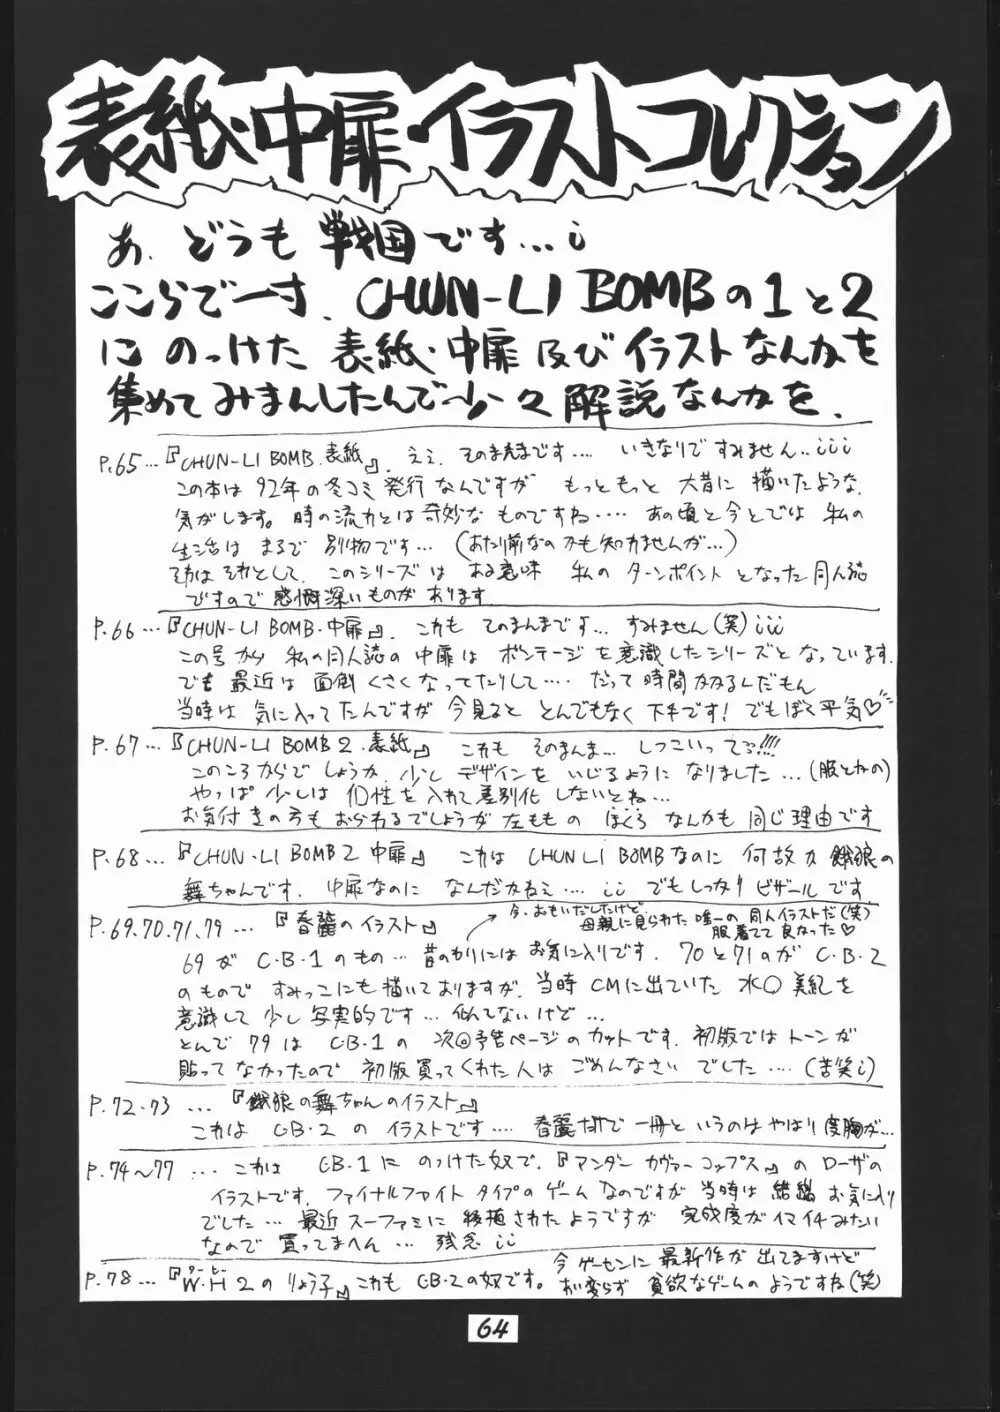 表紙・中扉・イラストコレクション
あ、どうも戦国です…i
ここらで一寸、CHUN-LI BOMBの1と2
にのっけた表紙・中扉及びイラストなんかを
集めてみまんしたんで少々解説なんかを、
P.65…『CHUN-LI BOMB.表紙』、ええ、そのまんまです…. いきなりですみません..iii
この本は92年の冬コミ発行なんですが もっともっと大昔に描いたような
気がします。時の流れとは奇妙なものですね…. あの頃と今とでは私の
生活はまるで別物です… (あたり前なのかも知れませんが…)
それはそれとして、このシリーズはある意味 私のターンポイントとなった同人誌
ですので感慨深いものがあります
P.66…『CHUN-LI BOMB・中扉』、これもそのまんまです… すみません(笑)iii
この号から私の同人誌の中扉はボンテージを意識したシリーズとなっています.
でも最近は面倒くさくなってたりして…. だって時間かかるんだもん
当時は気に入ってたんですが今見るととんでもなく下手です! でもぼく平気♡
P.67…『CHUN-LI BOMB 2.表紙』 これもそのまんま… しつこいってう!!!
このころからでしょうか、少しデザインをいじるようになりました…(服とかの)
やっぱ少しは個性を入れて差別化しないとね…
お気付きの方もおられるでしょうが左ももの ほくろなんかも同じ理由です
P.68…『CHUN・LI BOMB 2 中扉』 これはCHUN LI BOMBなのに何故か餓狼の
舞ちゃんです. 中扉なのになんだかねえ…. ii でもしっかりビザールです
P.69.70.71.79… 『春麗のイラスト』
今、おもいだしたけど、
母親に見られた唯一の同人イラストだ(笑)
服着てて良かった♡
69がC・B・1のもの… 昔のわりにはお気に入りです. 70と71のがC・B・2
のものですみっこにも描いておりますが、当時CMに出ていた水〇美紀を
意識して少し写実的です… 似てないけど…
とんで79はC・B・1の次回予告ページのカットです. 初版ではトーンが
貼ってなかったので初版買ってくれた人はごめんなさいでした….(苦笑i)
P.72.73 … 『餓狼の舞ちゃんのイラスト』
これはC・B・2のイラストです…. 春麗だけで一冊というのはやはり度胸が…
P.74〜77 … これはC・B・1にのっけた奴で、『アンダーカヴァーコップス』のローザの
イラストです. ファイナルファイトタイプのゲームなのですが当時は結構お気に入り
でした… 最近スーファミに移植されたようですが 完成度がイマイチみたい
なので買ってまへん … 残念 ii
P.78…『W・H 2のりょう子』これもC・B・2の奴です。 今ゲーセンに最新作が出てますけど
相変らず貪欲なゲームのようですね(笑)
64